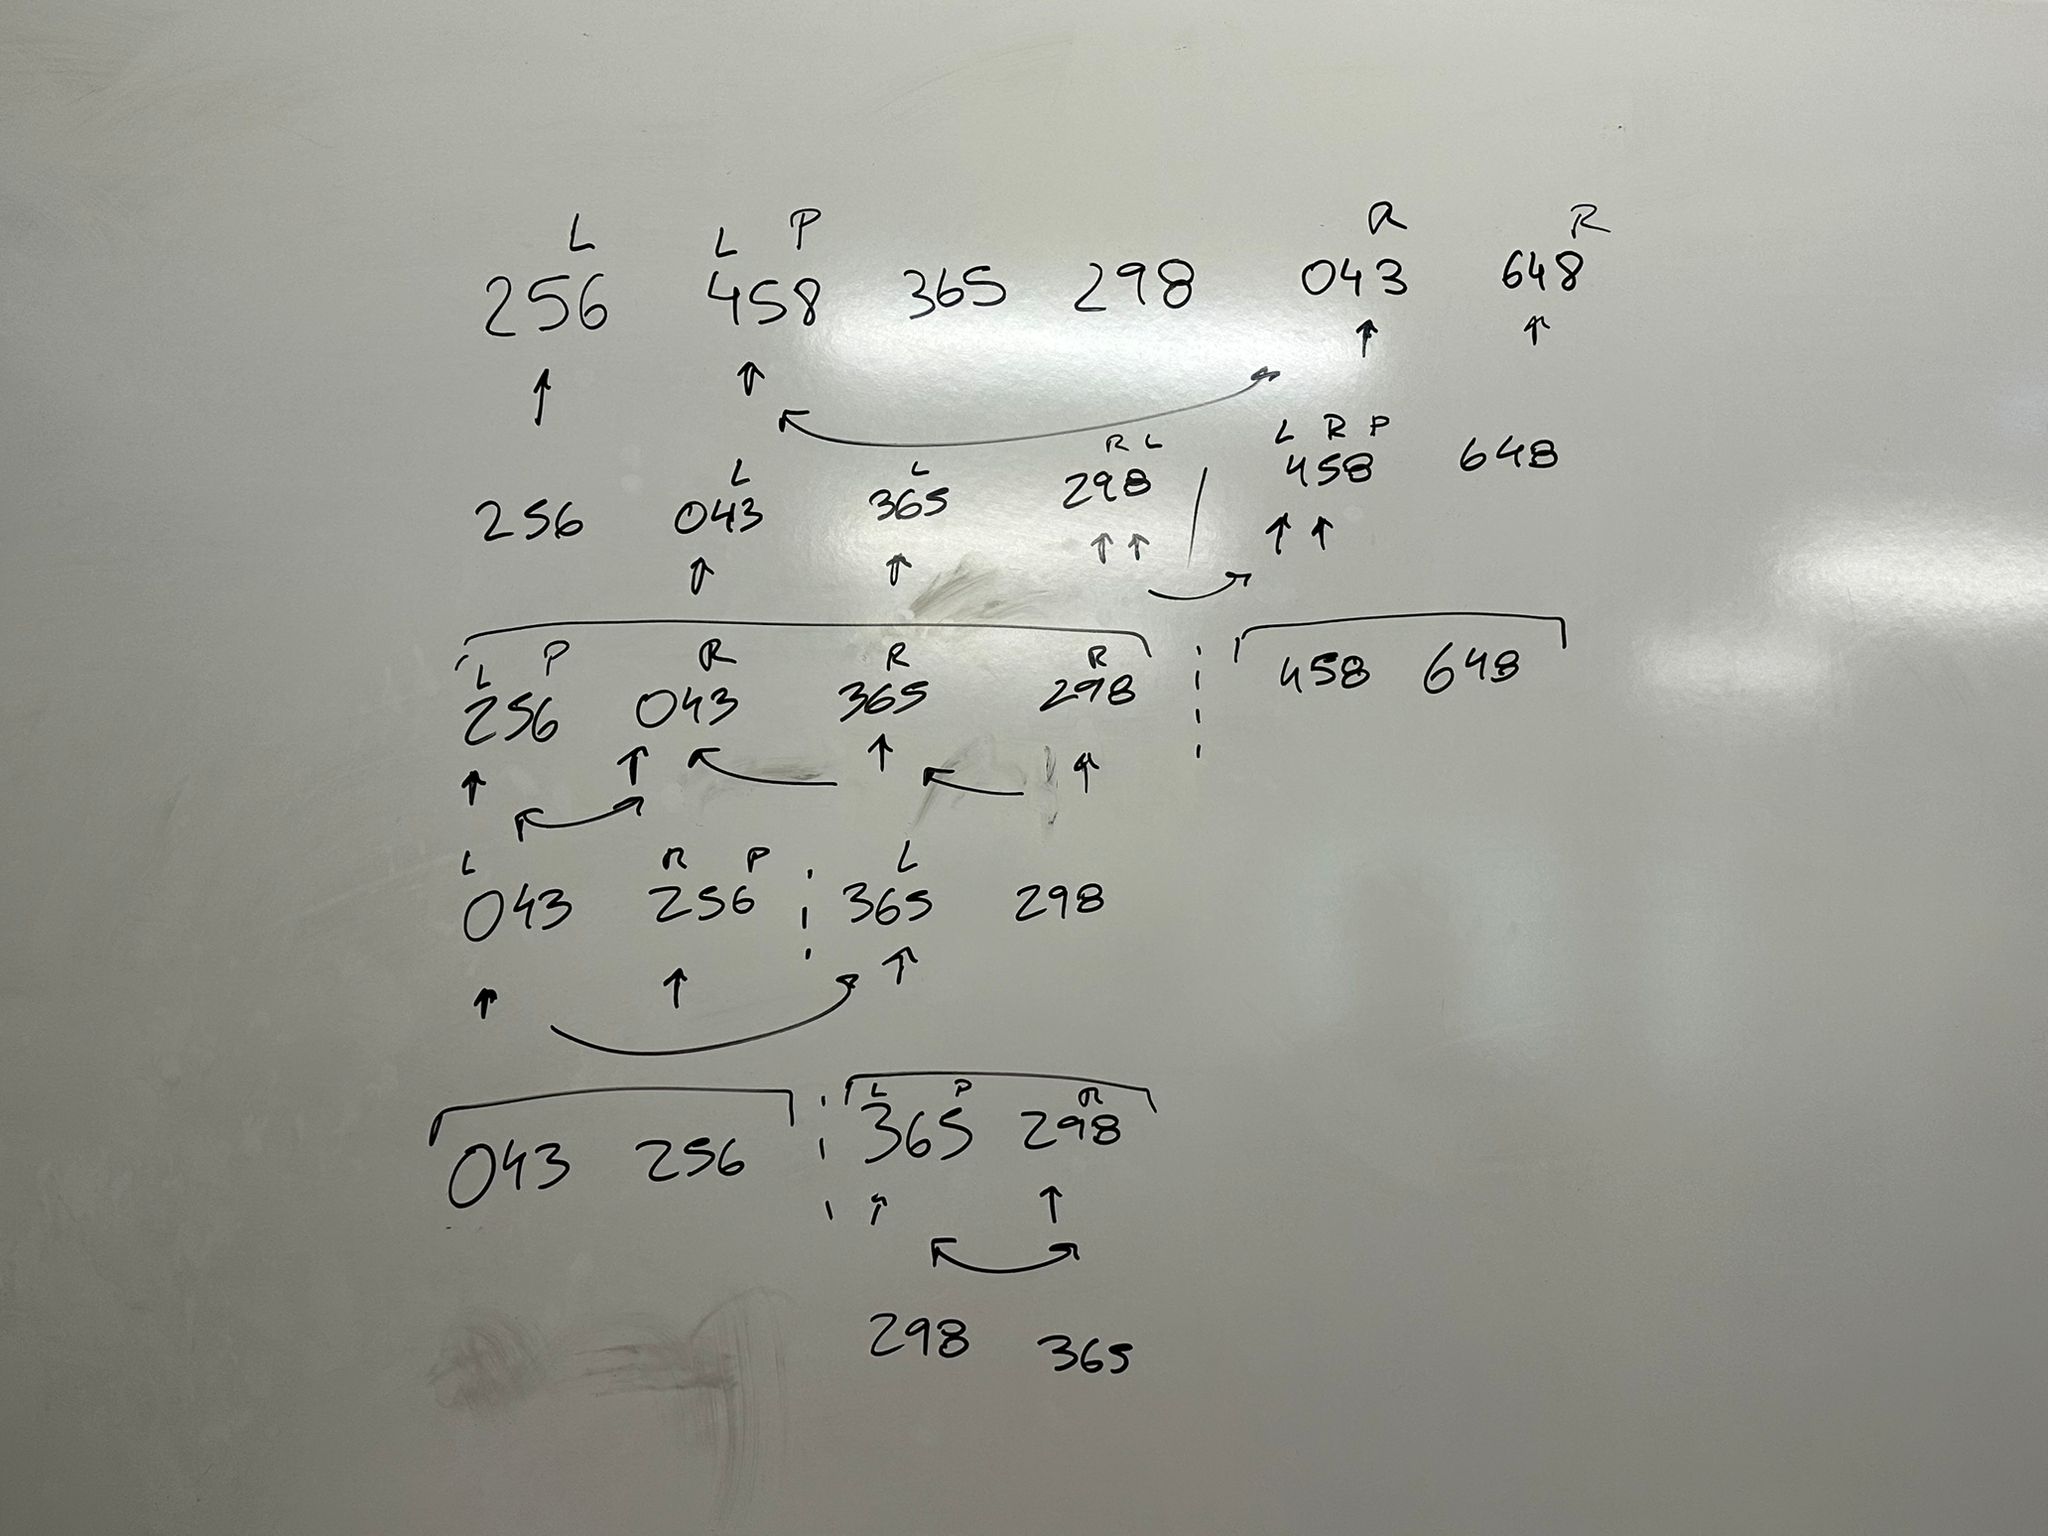 L L P R R
256 458 365 298 043 648
L L R L L R P
256 043 365 298 458 648
L P R R R
256 043 365 298 458 648
L R P L
043 256 365 298
L P R
043 256 365 298
298 365